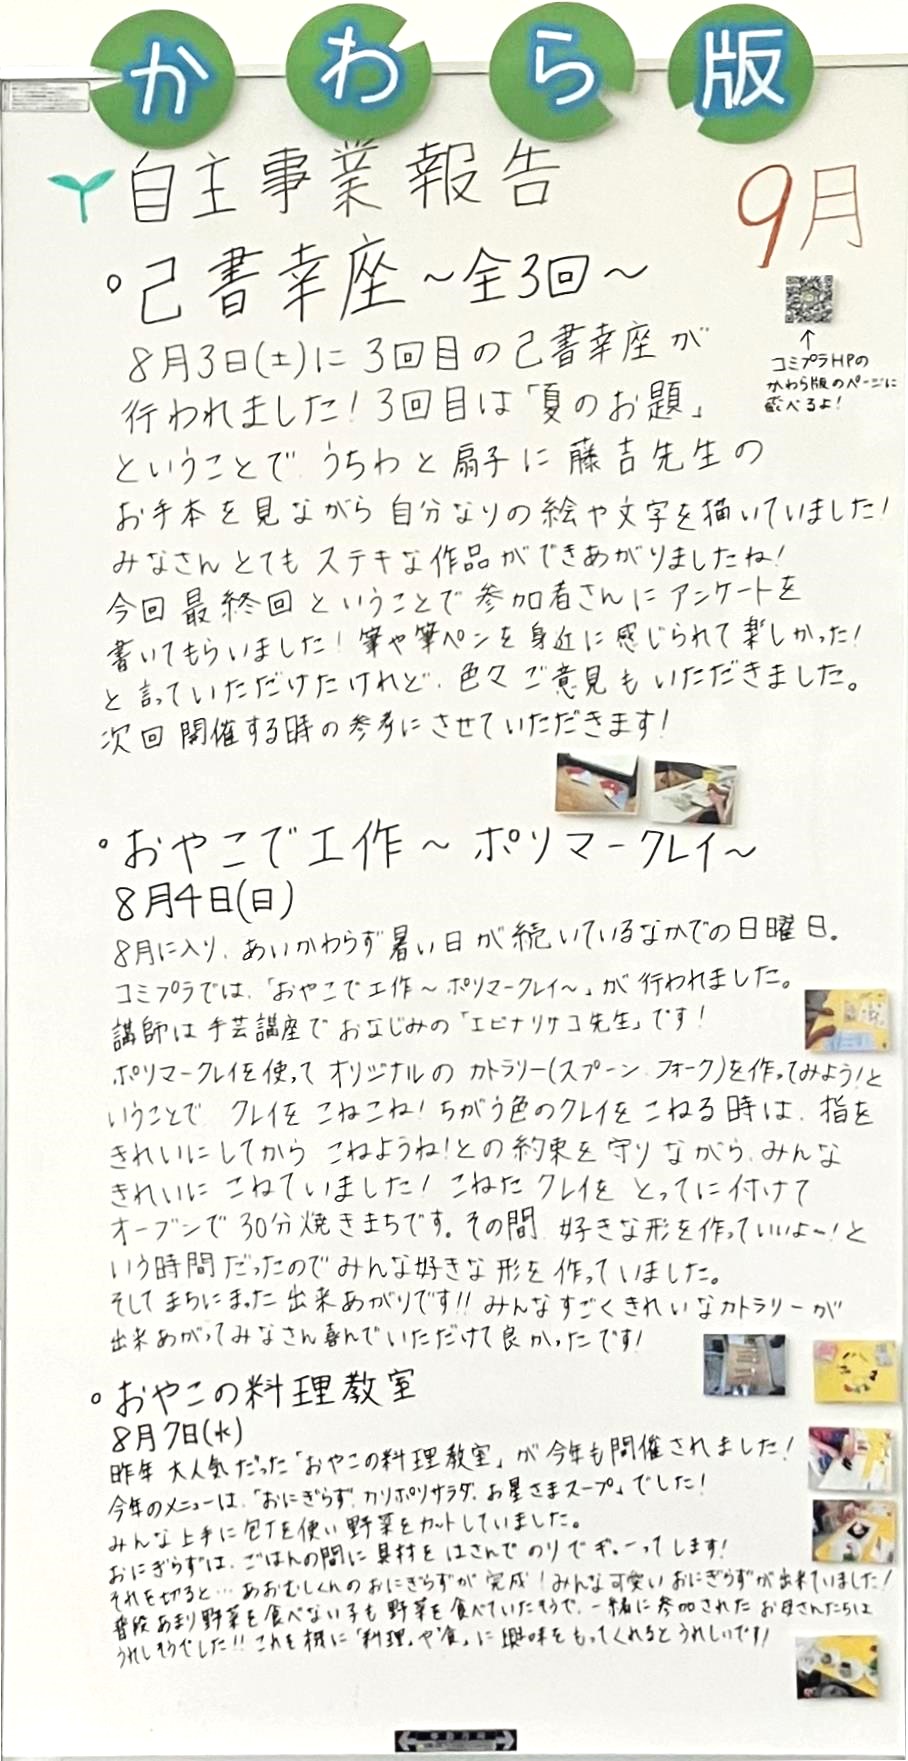 かわら版
自主事業報告
9月
己書幸座～全3回～
8月3日(土)に3回目の己書幸座が
行われました!3回目は「夏のお題」
ということで、うちわと扇子に藤吉先生の
お手本を見ながら自分なりの絵や文字を描いていました!
みなさんとてもステキな作品ができあがりましたね!
今回最終回ということで参加者さんにアンケートを
書いてもらいました!筆や筆ペンを身近に感じられて楽しかった!
と言っていただけたけれど、色々ご意見もいただきました。
次回開催する時の参考にさせていただきます!
↑
コミプラHPの
かわら版のページに
飛べるよ!
おやこで工作～ポリマークレイ～
8月4日(日)
8月に入り、あいかわらず暑い日が続いているなかでの日曜日。
コミプラでは、「おやこで工作～ポリマークレイ～」が行われました。
講師は手芸講座でおなじみの「エビナリサコ先生」です!
ポリマークレイを使ってオリジナルのカトラリー(スプーン、フォーク)を作ってみよう!と
いうことで、クレイをこねこね!ちがう色のクレイをこねる時は、指を
きれいにしてからこねようね!との約束を守りながら、みんな
きれいにこねていました!こねたクレイをとってに付けて
オーブンで30分焼きまちです。その間、好きな形を作っていいよ～!と
いう時間だったのでみんな好きな形を作っていました。
そしてまちにまった出来あがりです!!みんなすごくきれいなカトラリーが
出来あがってみなさん喜んでいただけて良かったです!
おやこの料理教室
8月7日(水)
昨年大人気だった「おやこの料理教室」が今年も開催されました!
今年のメニューは、「おにぎらず、カリポリサラダ、お星さまスープ」でした!
みんな上手に包丁を使い野菜をカットしていました。
おにぎらずは、ごはんの間に具材をはさんでのりでギューってします!
それを切ると…あおむしくんのおにぎらずが完成!みんな可愛いおにぎらずが出来ていました!
普段あまり野菜を食べない子も野菜を食べていたそうで、一緒に参加されたお母さんたちは
うれしそうでした!!これを機に「料理」や「食」に興味をもってくれるとうれしいです!